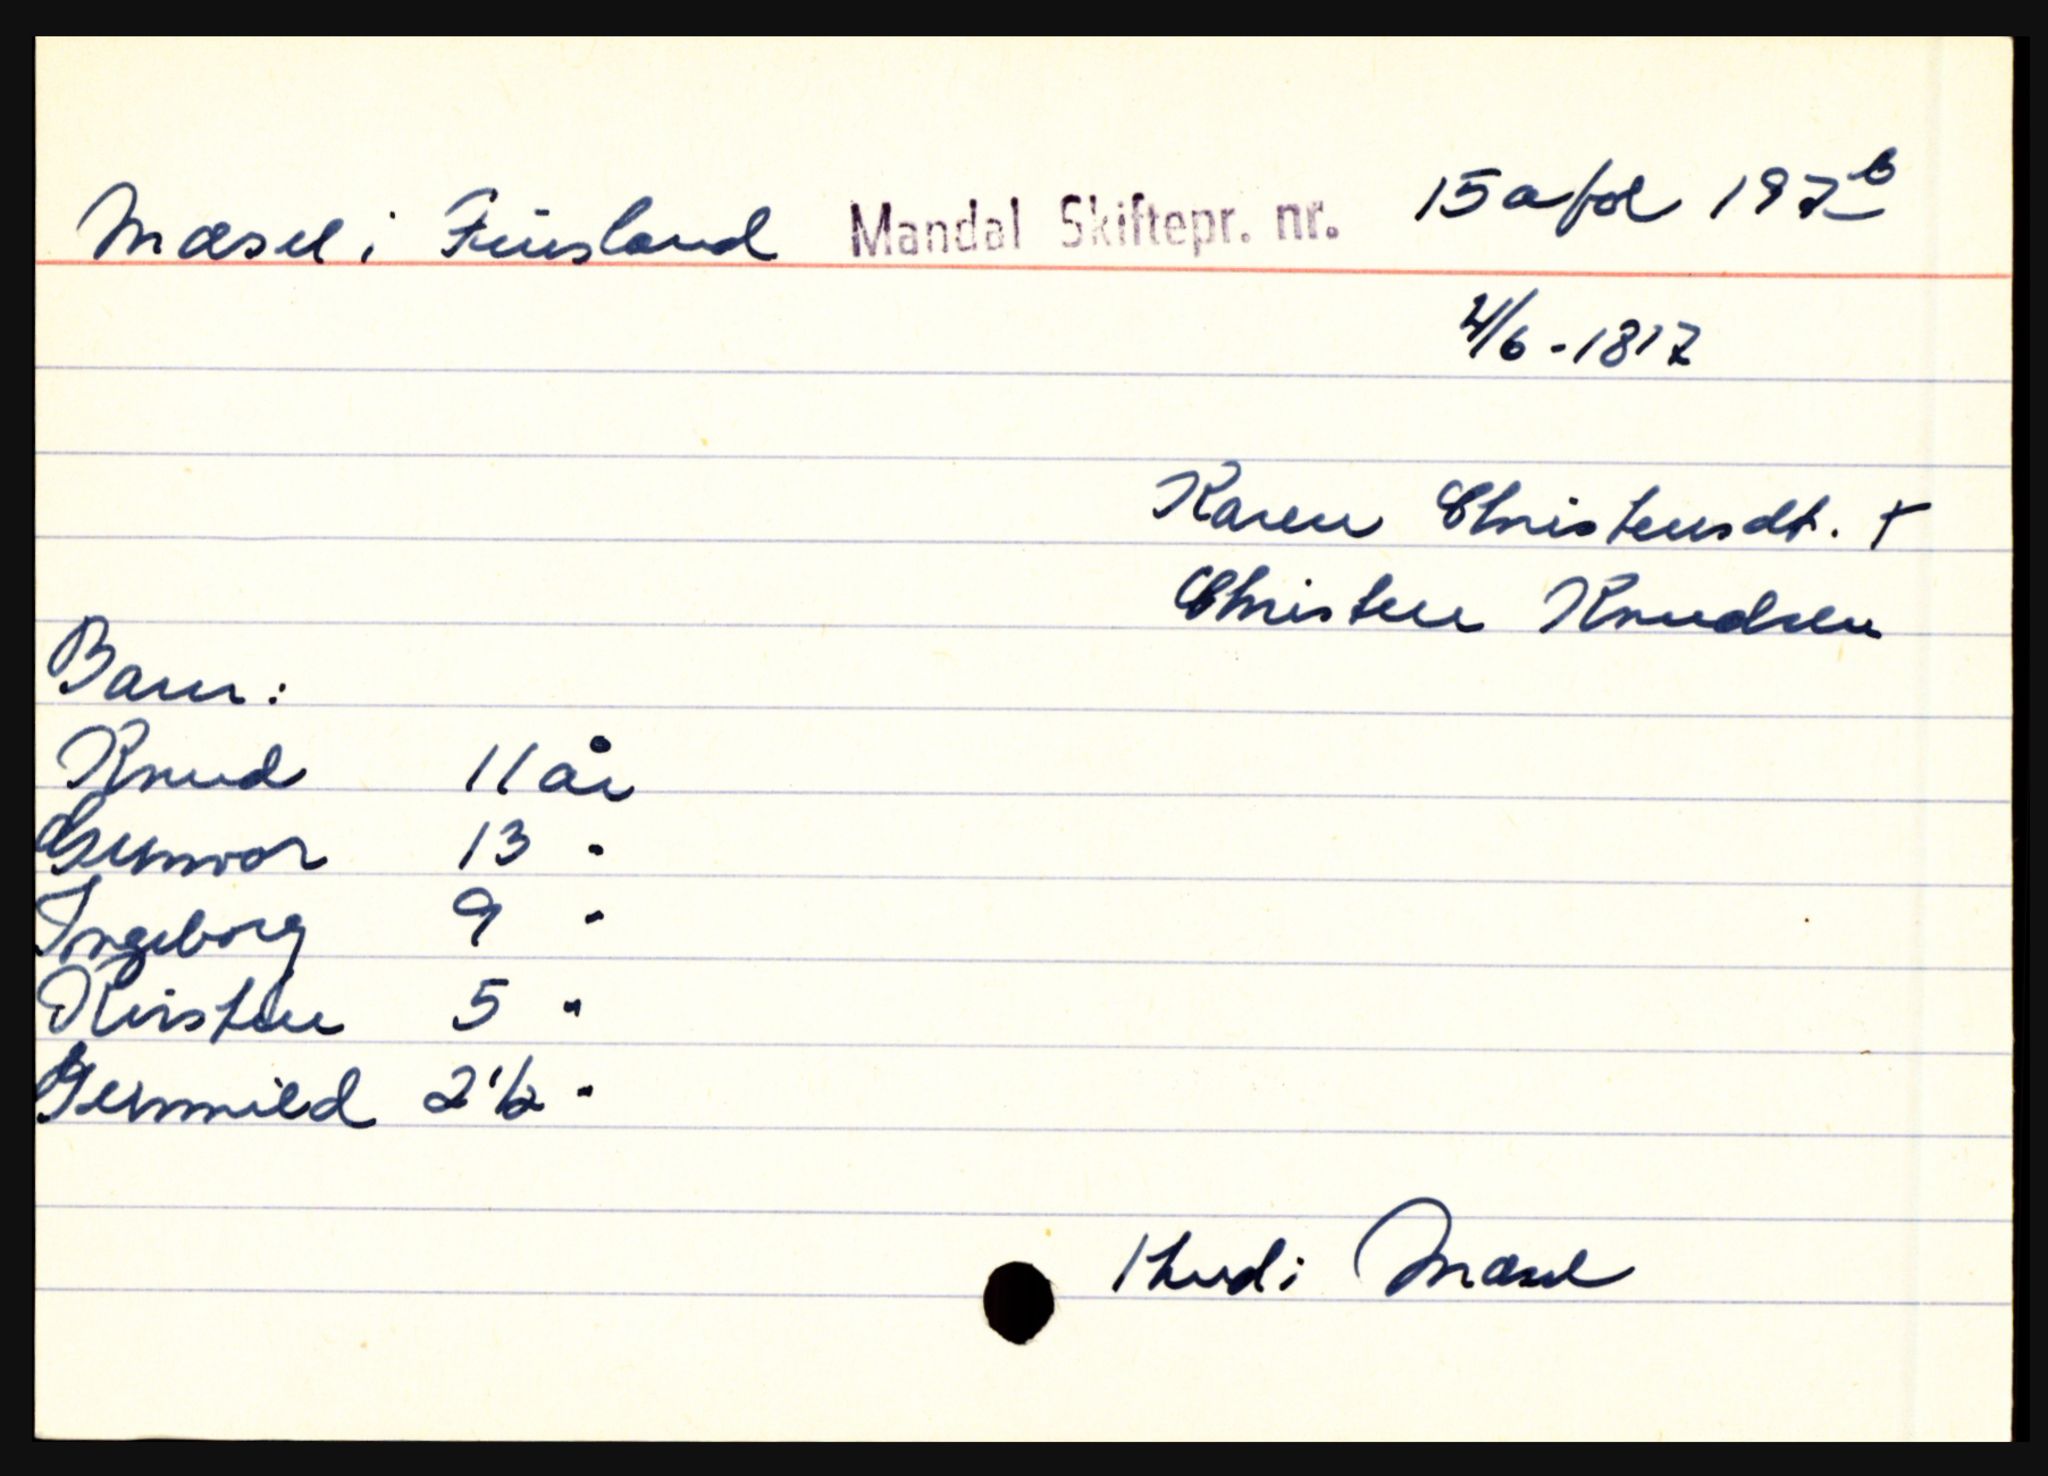 Mæsel i Finsland Mandal Skiftepr. nr. 15 a fol 197b
4/6 - 1817
Karen Christensdt. +
Christen Knudsen
Barn:
Knud 11 år
Gunvor 13 "
Ingeborg 9 "
Kirsten 5 "
Gunnild 2 1/2 "
1 hud i Mæsel